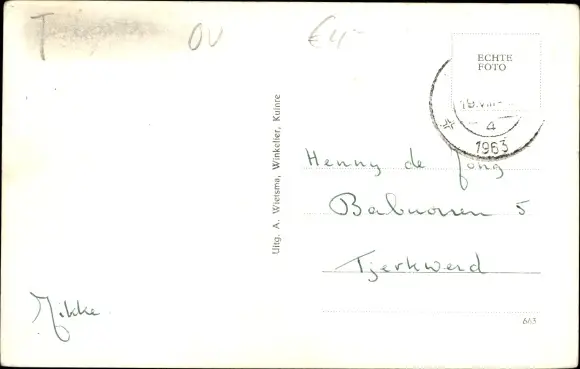 T
OV
€4,-
ECHTE
FOTO
16.VIII
4
1963
Uitg. A. Wietsma, Winkelier, Kuinre
Henny de Jong
Babuorren 5
Tjerkwerd
Hikke
663